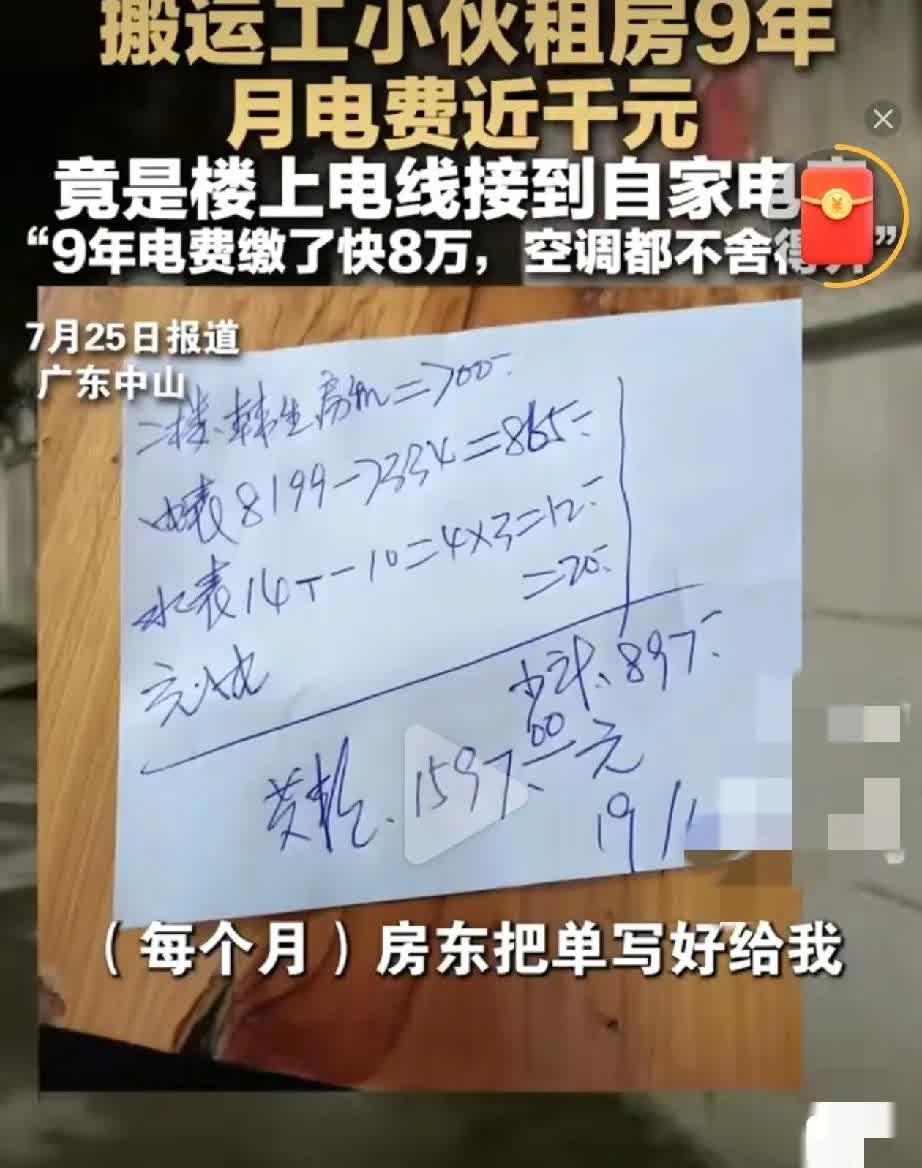 搬运工小伙租房9年
月电费近千元
竟是楼上电线接到自家电
“9年电费缴了快8万，空调都不舍得开”
7月25日报道
广东中山
二楼、韩生房租=700-
电表8199-7334=865-
水表14T-10=4×3=12-
=20-
小计、897-
1597.00元
19/1
（每个月）房东把单写好给我